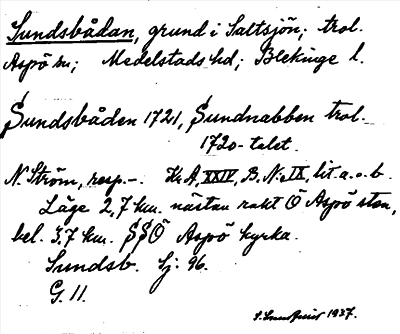 Sundsbådan, grund i Saltsjön; trol.
Aspö sn; Medelstads hd; Blekinge l.
Sundsbåden 1721, Sundnabben trol.
1720-talet.
N. Ström, resp. -. Kr. A, XXIV, B. N:o IX, lit. a. o. b.
Läge 2,7 km. nästan rakt Ö Aspö sten,
bel. 3,7 km. SSÖ Aspö kyrka.
Sundsb. Sj: 96.
G. 11.
1937.